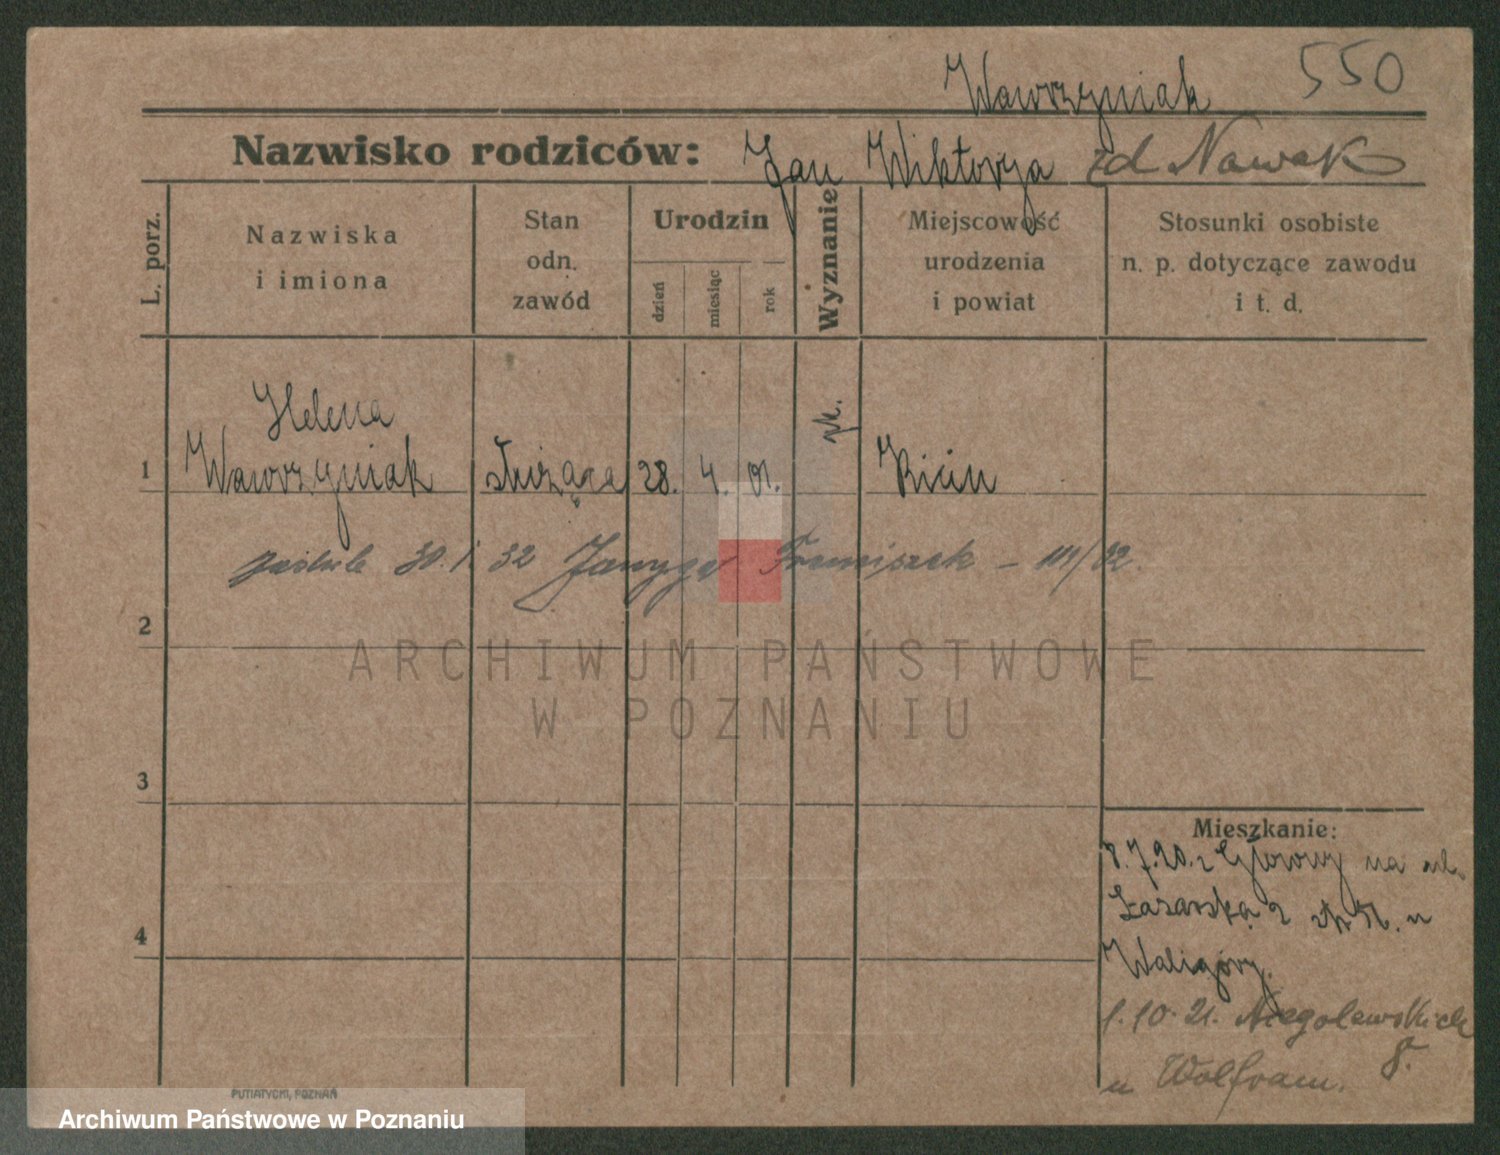 Wawrzyniak 550
Nazwisko rodziców: Jan Wiktorja zd Nowak
L. porz.
Nazwiska
i imiona
Stan
odn.
zawód
Urodzin
dzień
miesiąc
rok
Wyznanie
Miejscowość
urodzenia
i powiat
Stosunki osobiste
n. p. dotyczące zawodu
i t. d.
1 Helena
Wawrzyniak służąca 28. 4. 01. rk.
30. 1. 32 Franciszek - 111/32.
2
ARCHIWUM PAŃSTWOWE
W POZNANIU
3
4
Mieszkanie:
8.7.20. z Głowny na ul.
Łazarska 2 u
Waligóry.
1.10.21. Niegolewskich
8.
u Wolfram.
PUTIATYCKI, POZNAŃ
Archiwum Państwowe w Poznaniu